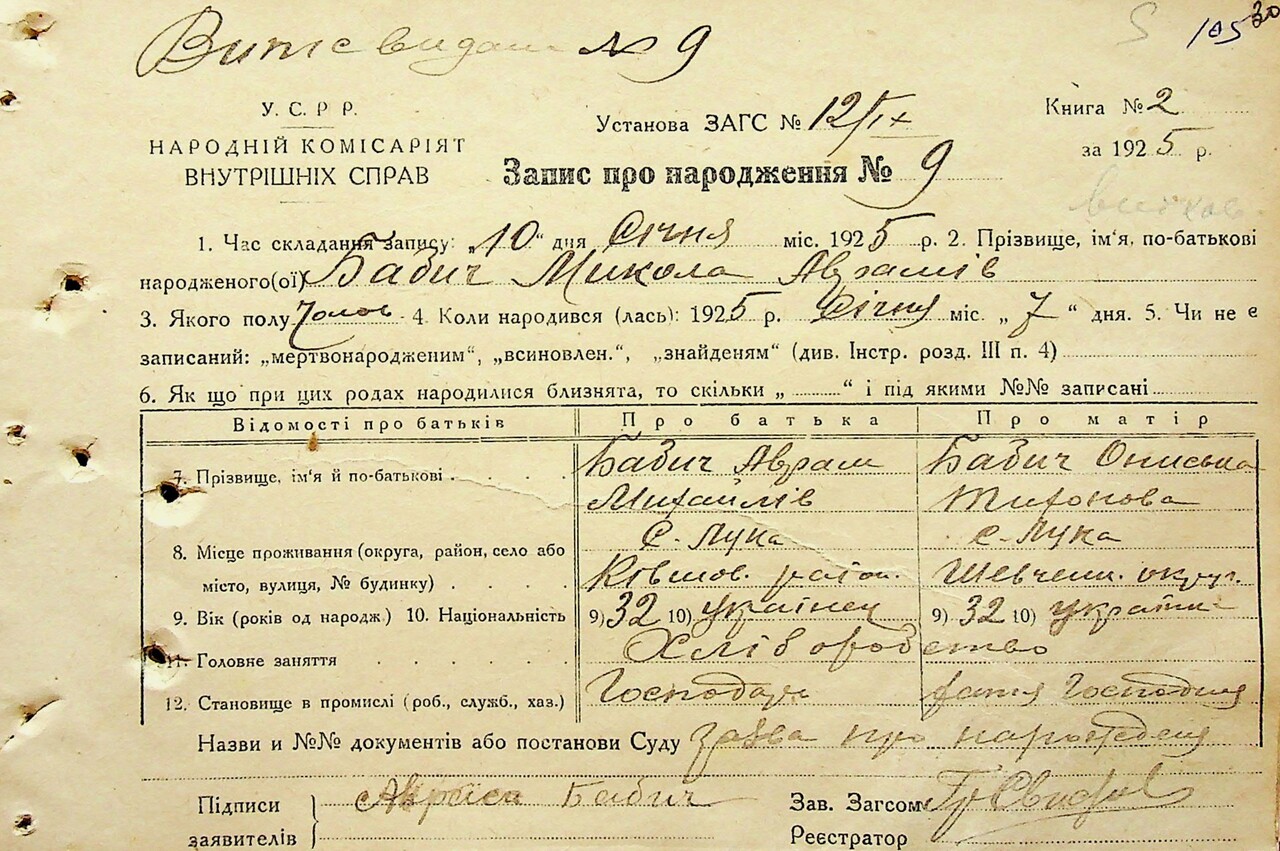 Витяг видано № 9
105 30
У. С. Р. Р.
НАРОДНІЙ КОМІСАРІЯТ
ВНУТРІШНІХ СПРАВ
Установа ЗАГС № 12/IX
Книга № 2
за 1925 р.
Запис про народження № 9
1. Час складання запису: „10“ дня Січня міс. 1925 р. 2. Прізвище, ім'я, по-батькові
народженого(ої) Бабич Микола Аврамів
3. Якого полу Чолов 4. Коли народився (лась): 1925 р. Січня міс. „7“ дня. 5. Чи не є
записаний: „мертвонародженим“, „всиновлен.“, „знайденям“ (див. Інстр. розд. III п. 4)
6. Як що при цих родах народилися близнята, то скільки „ “ і під якими №№ записані
Відомості про батьків Про батька Про матір
7. Прізвище, ім'я й по-батькові Бабич Аврам Бабич Ониська
Михайлів Тихонова
8. Місце проживання (округа, район, село або с. Лука с. Лука
місто, вулиця, № будинку) Ківшов. район. Шевченк. округ.
9. Вік (років од народж.) 10. Національність 9) 32 10) українец 9) 32 10) україн
11. Головне заняття Хліборобство
12. Становище в промислі (роб., служб., хаз.) Господарь Господаря
Назви и №№ документів або постанови Суду заява про народження
Підписи Бабич Зав. Загсом
заявителів Реєстратор